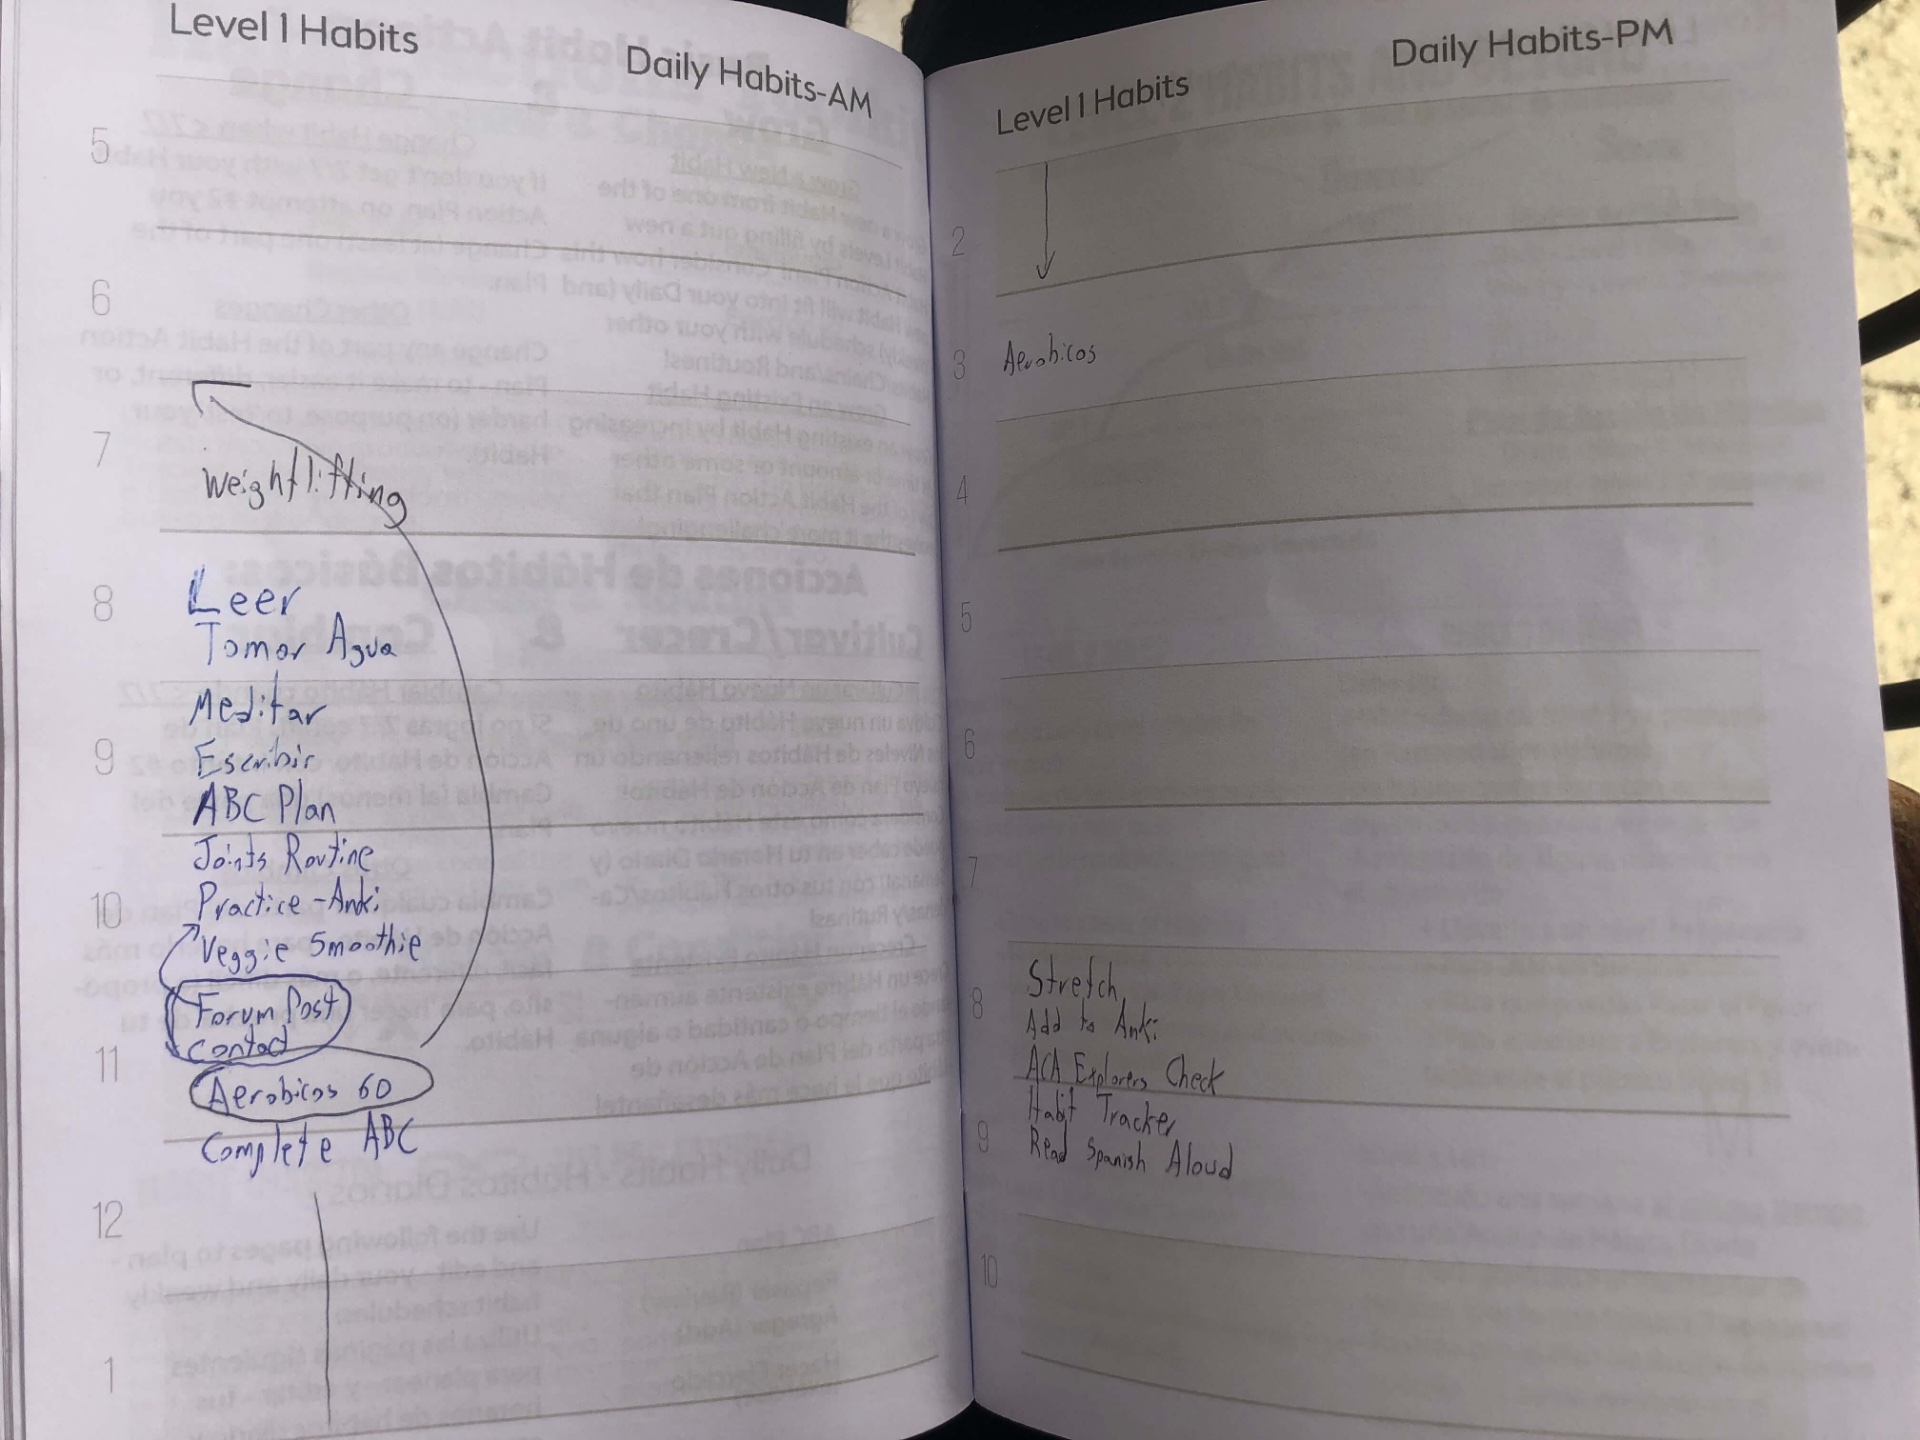 Level 1 Habits
Daily Habits-AM
5
6
7
Weightlifting
8
Leer
Tomar Agua
Meditar
9
Escribir
ABC Plan
Joints Routine
10
Practice - Anki
Veggie Smoothie
Forum Post
Contact
11
Aerobicos 60
Complete ABC
12
1
Level 1 Habits
Daily Habits-PM
2
3
Aerobicos
4
5
6
7
Stretch
8
Add to Anki
ACA Explorers Check
Habit Tracker
9
Read Spanish Aloud
10